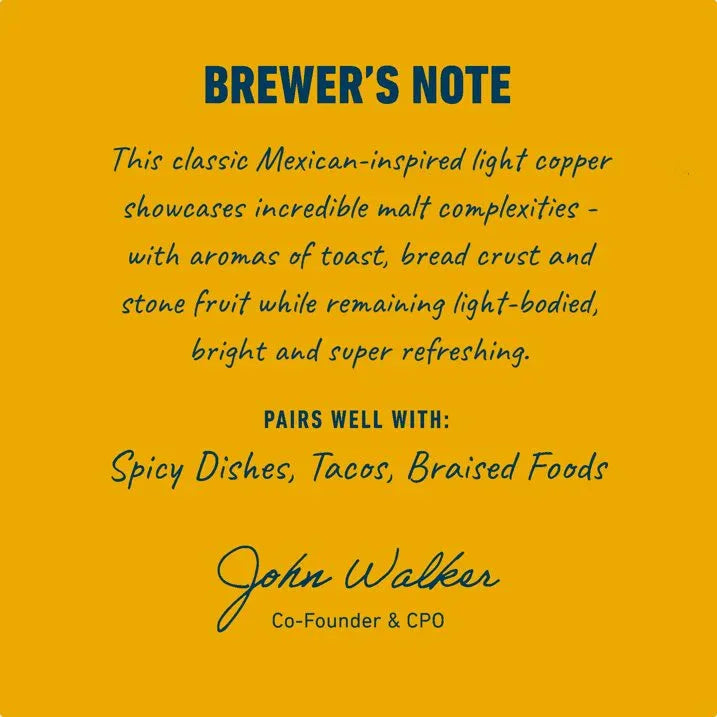 BREWER'S NOTE
This classic Mexican-inspired light copper
showcases incredible malt complexities -
with aromas of toast, bread crust and
stone fruit while remaining light-bodied,
bright and super refreshing.
PAIRS WELL WITH:
Spicy Dishes, Tacos, Braised Foods
John Walker
Co-Founder & CPO